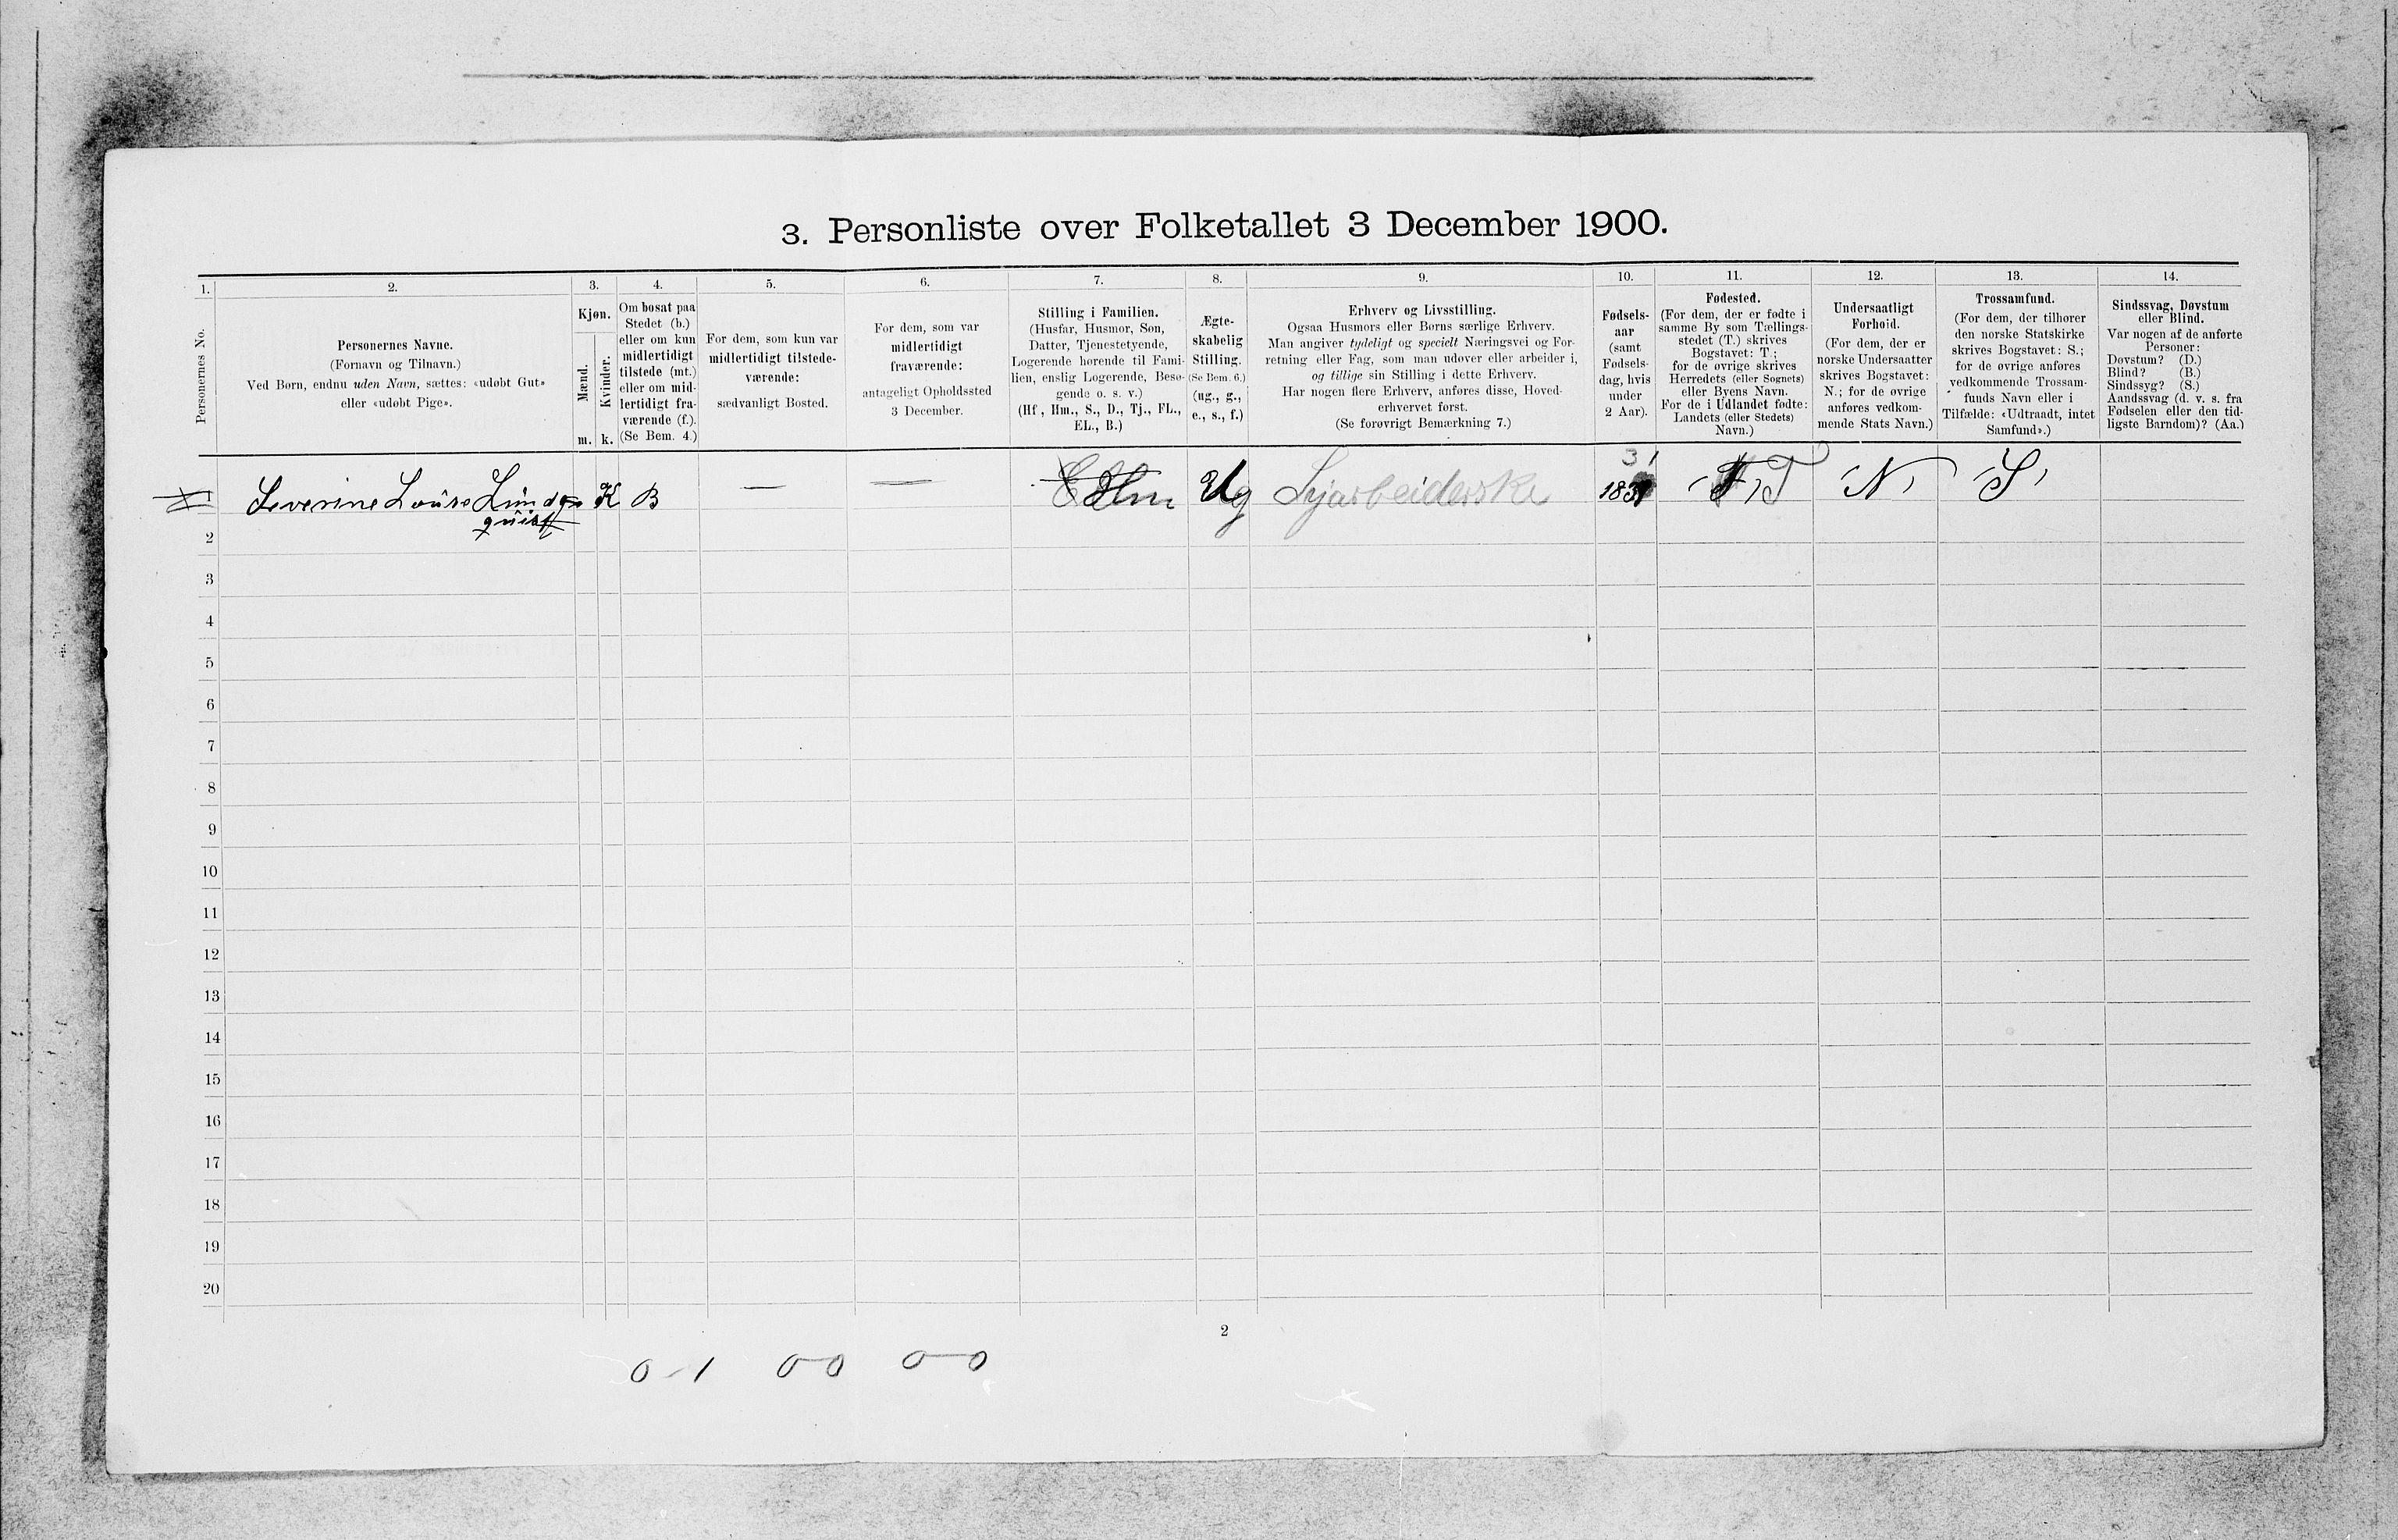 3. Personliste over Folketallet 3 December 1900.
1. 2. 3. 4. 5. 6. 7. 8. 9. 10. 11. 12. 13. 14.
Personernes No.
Personernes Navne.
(Fornavn og Tilnavn.)
Ved Børn, endnu uden Navn, sættes: «udøbt Gut»
eller «udøbt Pige».
Kjøn.
Mænd.
Kvinder.
m. k.
Om bosat paa
Stedet (b.)
eller om kun
midlertidigt
tilstede (mt.)
eller om mid-
lertidigt fra-
værende (f.).
(Se Bem. 4.)
For dem, som kun var
midlertidigt tilstede-
værende:
sædvanligt Bosted.
For dem, som var
midlertidigt
fraværende:
antageligt Opholdssted
3 December.
Stilling i Familien.
(Husfar, Husmor, Søn,
Datter, Tjenestetyende,
Logerende hørende til Fami-
lien, enslig Logerende, Besø-
gende o. s. v.)
(Hf., Hm., S., D., Tj., FL.,
EL., B.)
Ægte-
skabelig
Stilling.
(Se Bem. 6.)
(ug., g.,
e., s., f.)
Erhverv og Livsstilling.
Ogsaa Husmors eller Børns særlige Erhverv.
Man angiver tydeligt og specielt Næringsvei og For-
retning eller Fag, som man udøver eller arbeider i,
og tillige sin Stilling i dette Erhverv.
Har nogen flere Erhverv, anføres disse, Hoved-
erhvervet først.
(Se forøvrigt Bemærkning 7.)
Fødsels-
aar
(samt
Fødsels-
dag, hvis
under
2 Aar).
Fødested.
(For dem, der er fødte i
samme By som Tællings-
stedet (T.) skrives
Bogstavet: T.;
for de øvrige skrives
Herredets (eller Sognets)
eller Byens Navn.
For de i Udlandet fødte:
Landets (eller Stedets)
Navn.)
Undersaatligt
Forhold.
(For dem, der er
norske Undersaatter
skrives Bogstavet:
N.; for de øvrige
anføres vedkom-
mende Stats Navn.)
Trossamfund.
(For dem, der tilhører
den norske Statskirke
skrives Bogstavet: S.;
for de øvrige anføres
vedkommende Trossam-
funds Navn eller i
Tilfælde: «Udtraadt, intet
Samfund».)
Sindssvag, Døvstum
eller Blind.
Var nogen af de anførte
Personer:
Døvstum? (D.)
Blind? (B.)
Sindssyg? (S.)
Aandssvag (d. v. s. fra
Fødselen eller den tid-
ligste Barndom)? (Aa.)
31
Severine Louise Lindq= K B — — Hm Ug Syarbeiderske 1831 T N S
quist
2
3
4
5
6
7
8
9
10
11
12
13
14
15
16
17
18
19
20
2
0 - 1 0 0 0 - 0